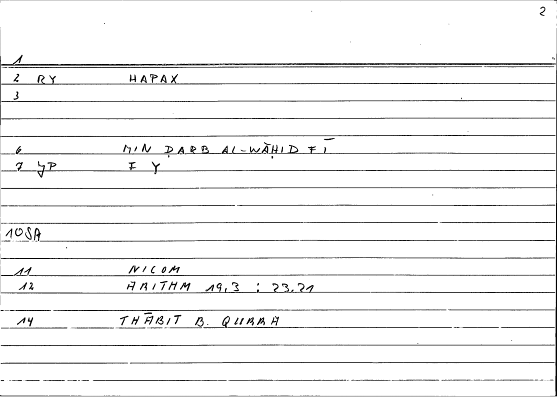 2
1
2 RY HAPAX
3
6 MIN ḌARB AL-WĀḤID FĪ
7 YP F Y
10 SA
11 NICOM
12 ARITHM 19,3 : 23,21
14 THĀBIT B. QURRA